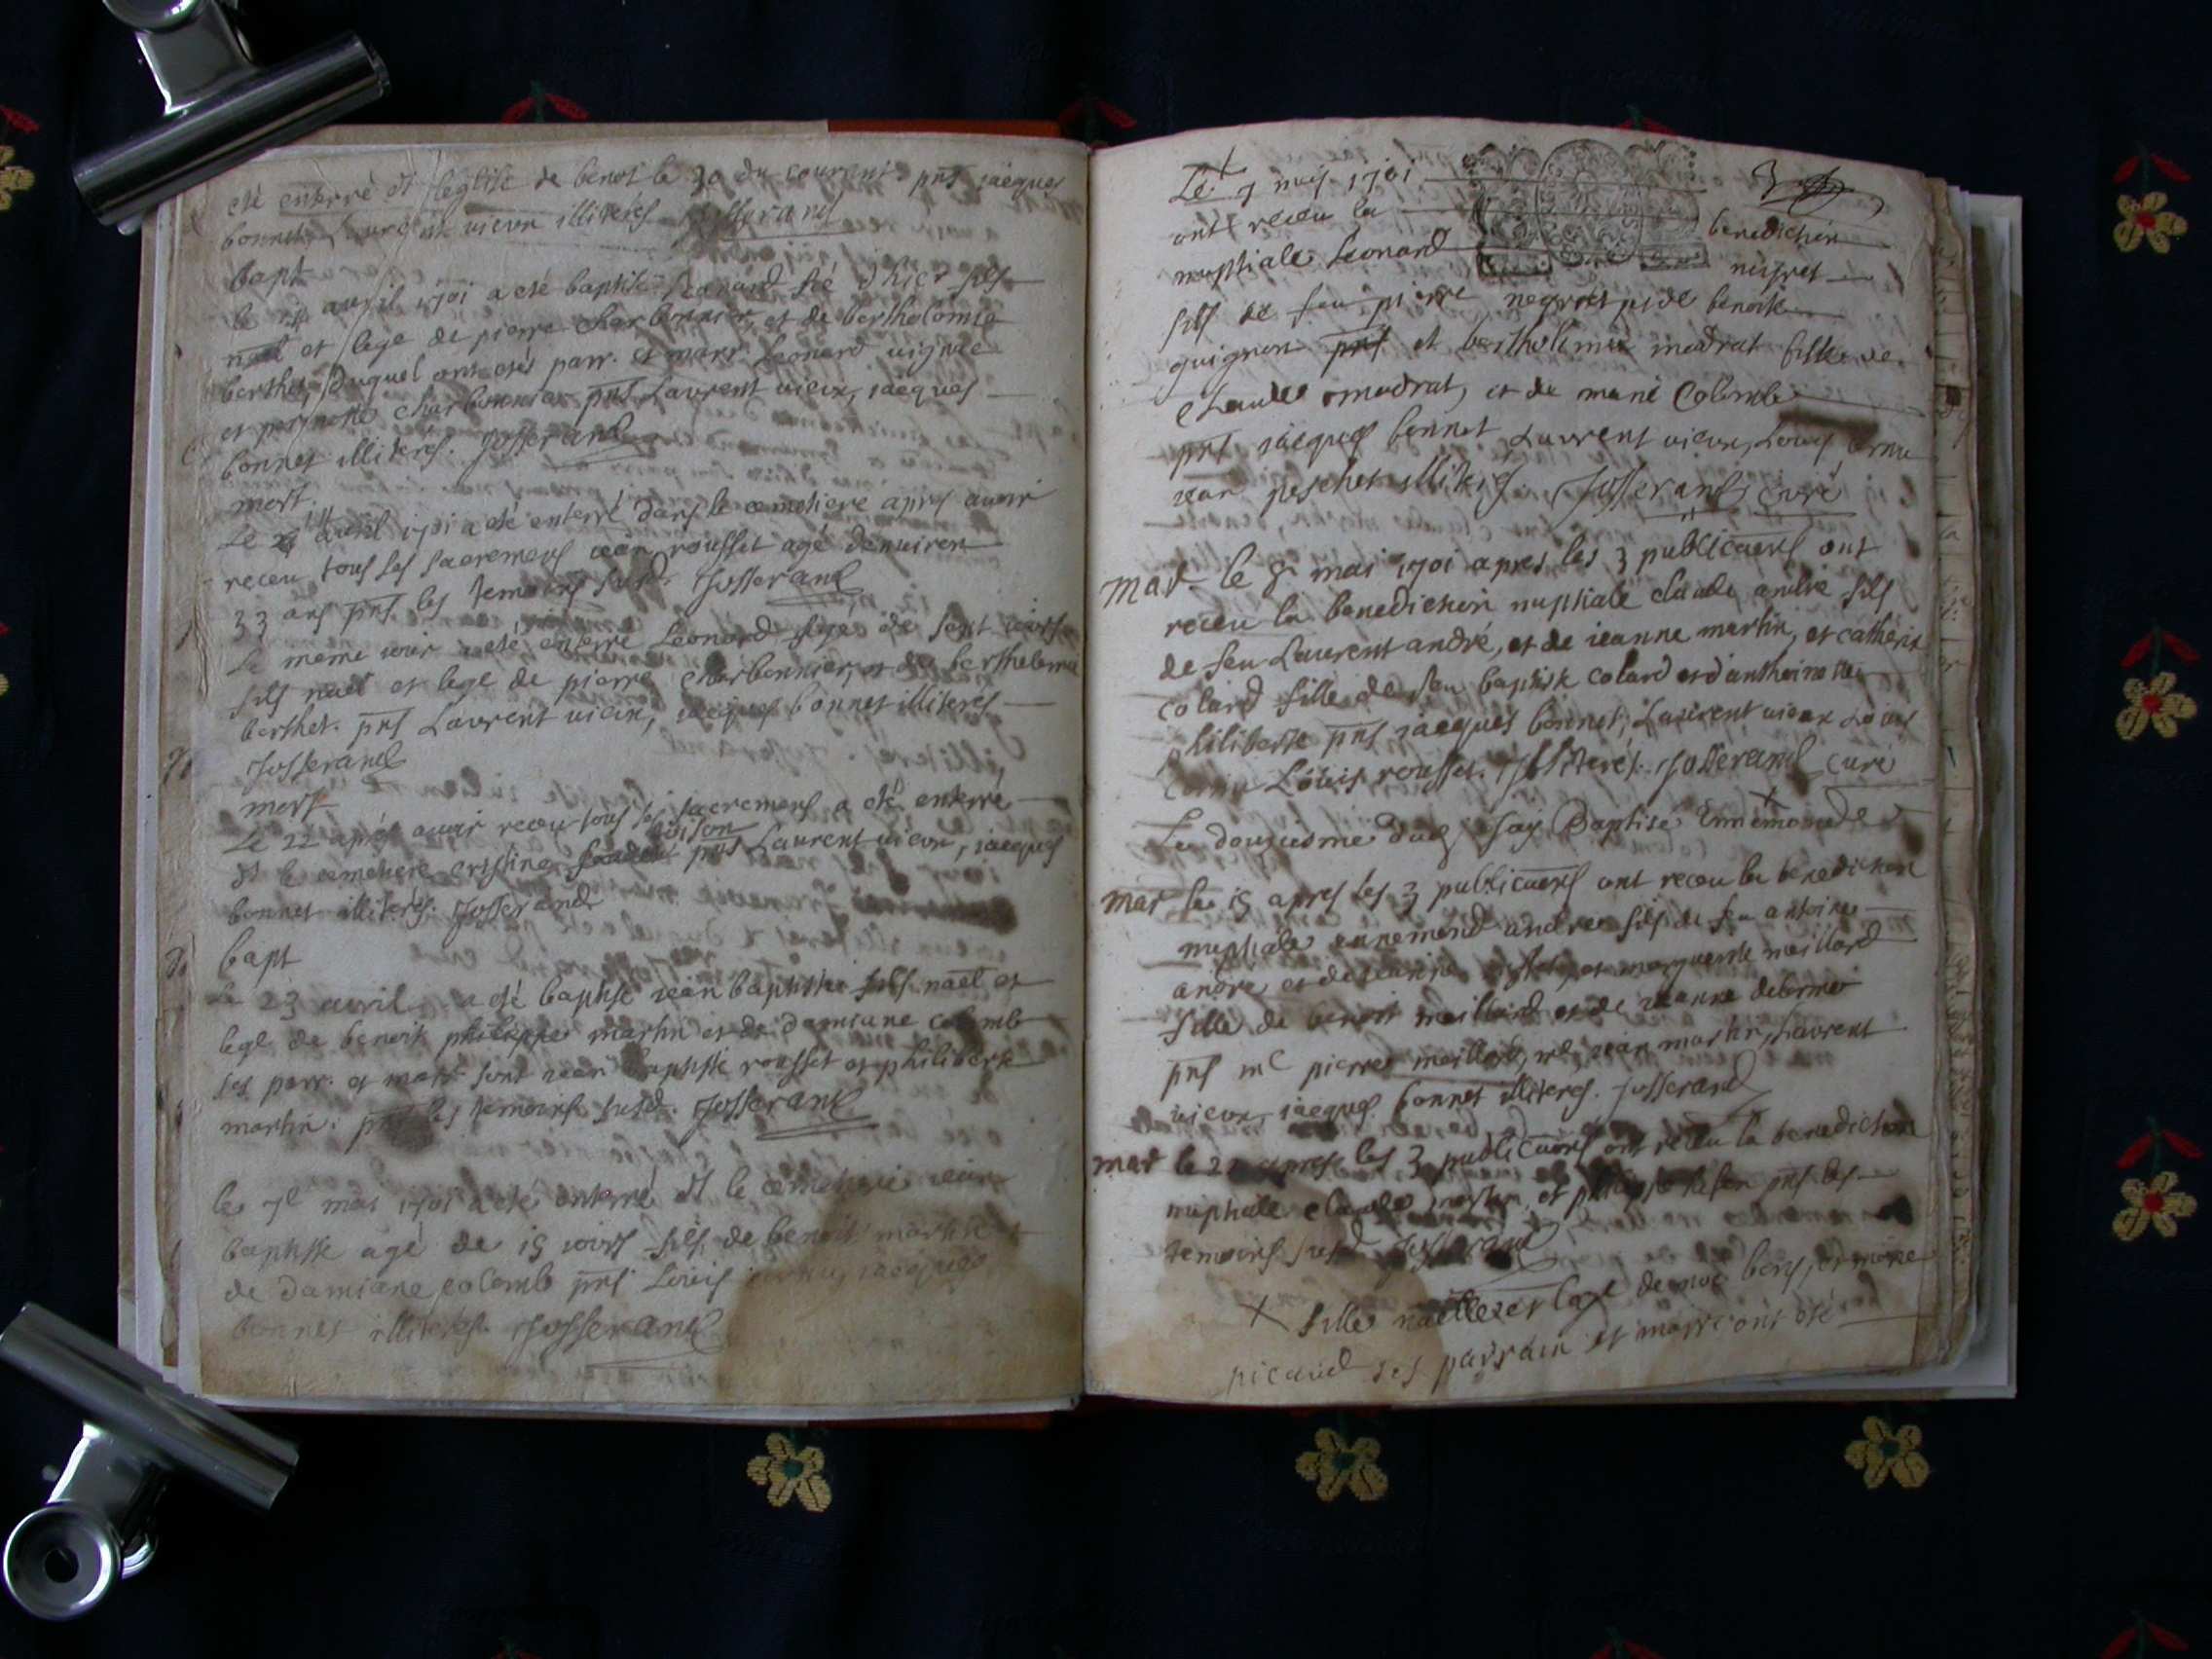 eté enterré dt leglise de benot le 30 du courent. pns jacques
bonnet, laurent vieux illiteres Josserand
bapt
le avril 1701 a eté baptisé Leonard né d'hier fils
nael et lege de pierre charbonnier, et de bertholomie
berthet, duquel ont etés parr. et marr. Leonard
et charbonnier pns Laurent vieux, jacques
bonnet illiterés. Josserand
mort.
Le avril 1701 a eté enterré dans le cemetiere apres avoir
receu tous les sacremens jean rousset agé denuiron
33 ans pns les temoins susd. Josserand
Le meme iour a eté enterré Leonard agé de sept iours
fils nael et lege de pierre charbonnier, et de berthelemie
berthet. pns Laurent vieux, jacques bonnet illiteres
Josserand
mort
Le 22 aprés avoir receu tous les sacremens a eté enterré
dt le cemetiere cristine pns Laurent vieux, jacques
bonnet illiterés. Josserand
bapt
Le 23 avril a eté baptisé jean baptiste fils nael et
lege de benoit philippe martin et de damiane colomb
ses parr. et marr. sont jean baptiste rousset et philiberte
martin. pns les temoins susd. Josserand
le 7e mai 1701 a eté enterré dt le cemetiere jean
baptiste agé de 15 iours fils de benoit martin et
de damiane colomb pns Louis cornu, jacques
bonnet illiterés. Josserand
Le 7 may 1701 3
ont receu la benediction
nuptiale Leonard neigret
fils de feu pierre negret et de benoite
guignon pns et bertholemie madrat fille de
claude madrat, et de marie Colomb
pns jacques bonnet, Laurent vieux, Louis Cornu
jean peschet illiterés. Josserand, curé
mar le 8 mai 1701 apres les 3 publicaons ont
receu la benediction nuptiale claude andré fils
de feu Laurent andré, et de jeanne martin, et catherine
colard fille de feu baptiste colard et d'anthoinette
philiberte pns jacques bonnet, Laurent vieux Louis
cornu Louis rousset. illiterés. Josserand curé
Le douziesme dud jay Baptisé Ennemonde
mar le 15 apres les 3 publicaons ont receu la benediction
nuptiale ennemond andré fils de feu antoine
andre et de jeanne et marguerite meillard
fille de benoit meillard et de jeanne delorme
pns me pierre meillard, jean martin, Laurent
vieux, jacques bonnet illiterés. Josserand
mar le 22 apres les 3 publicaons ont receu la benediction
nuptiale claude martin et pns les
temoins susd Josserand
X fille naelle et lage de noe bens, et marie
picaud ses parrain et marr. ont eté